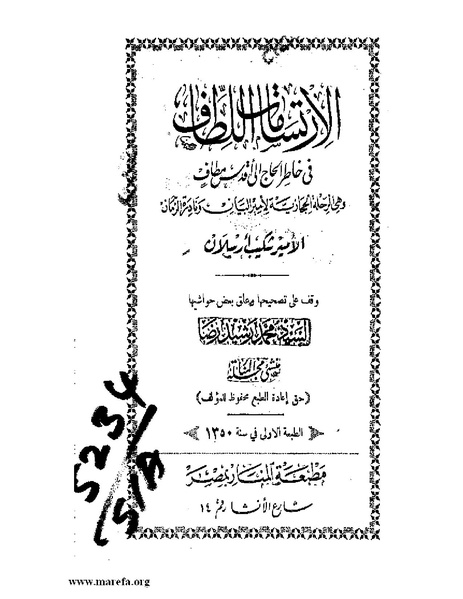 الارتسامات اللطاف
في خاطر الحاج إلى أقدس مطاف
وهي الرحلة الحجازية لأمير البيان ونادرة الزمان
الأمير شكيب أرسلان
وقف على تصحيحها وعلق بعض حواشيها
السيد محمد رشيد رضا
منشئ مجلة المنار
(حق إعادة الطبع محفوظ للمؤلف)
الطبعة الاولى في سنة ١٣٥٠
مطبعة المنار بمصر
شارع الأنشا رقم ١٤
5234
www.marefa.org